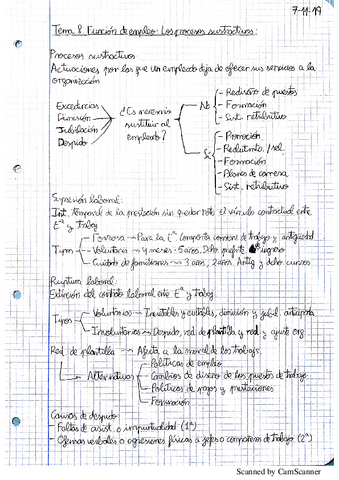 7-11-19
Tema 8. Función de empleo: Los procesos sustractivos:
Procesos sustractivos
Actuaciones por los que un empleado deja de ofrecer sus servicios a la
organización
Excedencias
Dimisión
Jubilación
Despido
¿Es necesario
sustituir al
empleado?
No
- Rediseño de puestos
- Formación
- Sist. retributivo
Sí
- Promoción
- Reclutmto./sel.
- Formación
- Planes de carrera
- Sist. retributivo
Supresión laboral:
Int. temporal de la prestación sin quedar roto el vínculo contractual entre
Eª y Trabaj
Tipos
Forzosa → Para la Eª comporta conserv de trabajo y antigüedad
Voluntaria → 4 meses - 5 años, Dcho prefte. ingreso
Cuidado de familiares → 3 años, 2 años. Antig y dcho cursos
Ruptura laboral:
Extinción del contrato laboral entre Eª y Trabaj
Tipos
Voluntarios → Inevitables y evitables, dimisión y jubil. anticipada
Involuntarios → Despido, red. de plantilla y red. y ajuste org
Red. de plantilla → Afecta a la moral de los trabajs.
Alternativas
- Políticas de empleo
- Cambios de diseño de los puestos de trabajo
- Políticas de pagos y prestaciones
- Formación
Causas de despido
- Faltas de asist. o impuntualidad (1ª)
- Ofensas verbales o agresiones físicas a jefes o compañeros de trabajo (2ª)
Scanned by CamScanner